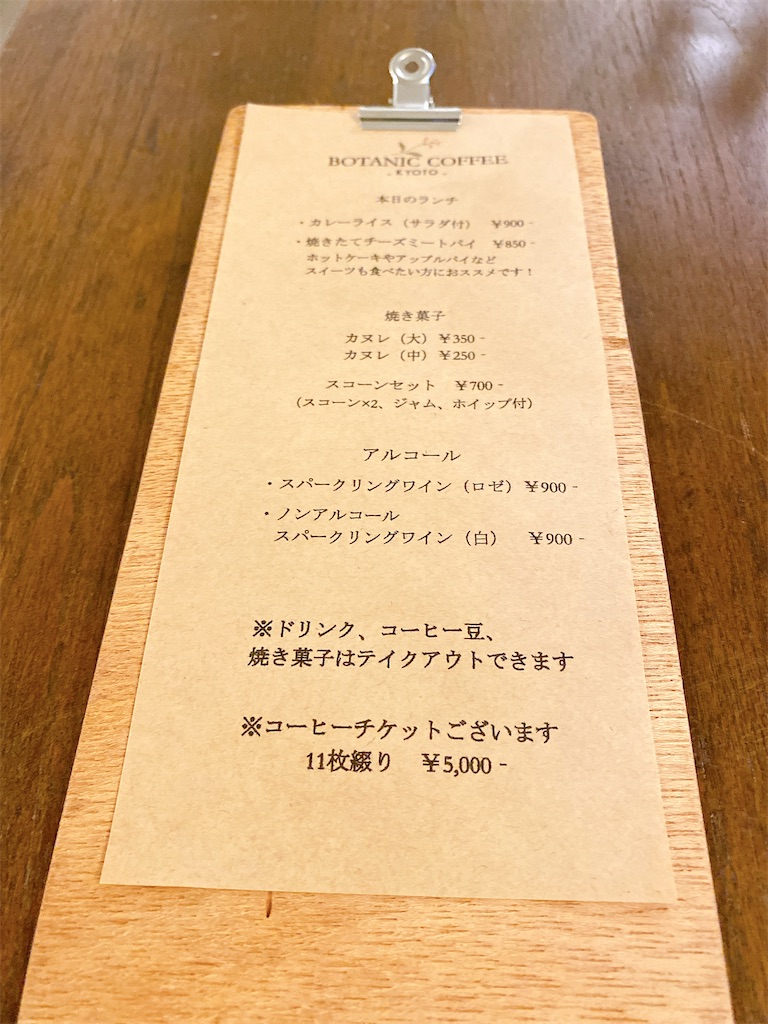 BOTANIC COFFEE
- KYOTO -
本日のランチ
・カレーライス（サラダ付） ￥900 -
・焼きたてチーズミートパイ ￥850 -
ホットケーキやアップルパイなど
スイーツも食べたい方におススメです！
焼き菓子
カヌレ（大）￥350 -
カヌレ（中）￥250 -
スコーンセット ￥700 -
（スコーン×2、ジャム、ホイップ付）
アルコール
・スパークリングワイン（ロゼ）￥900 -
・ノンアルコール
スパークリングワイン（白） ￥900 -
※ドリンク、コーヒー豆、
焼き菓子はテイクアウトできます
※コーヒーチケットございます
11枚綴り ￥5,000 -